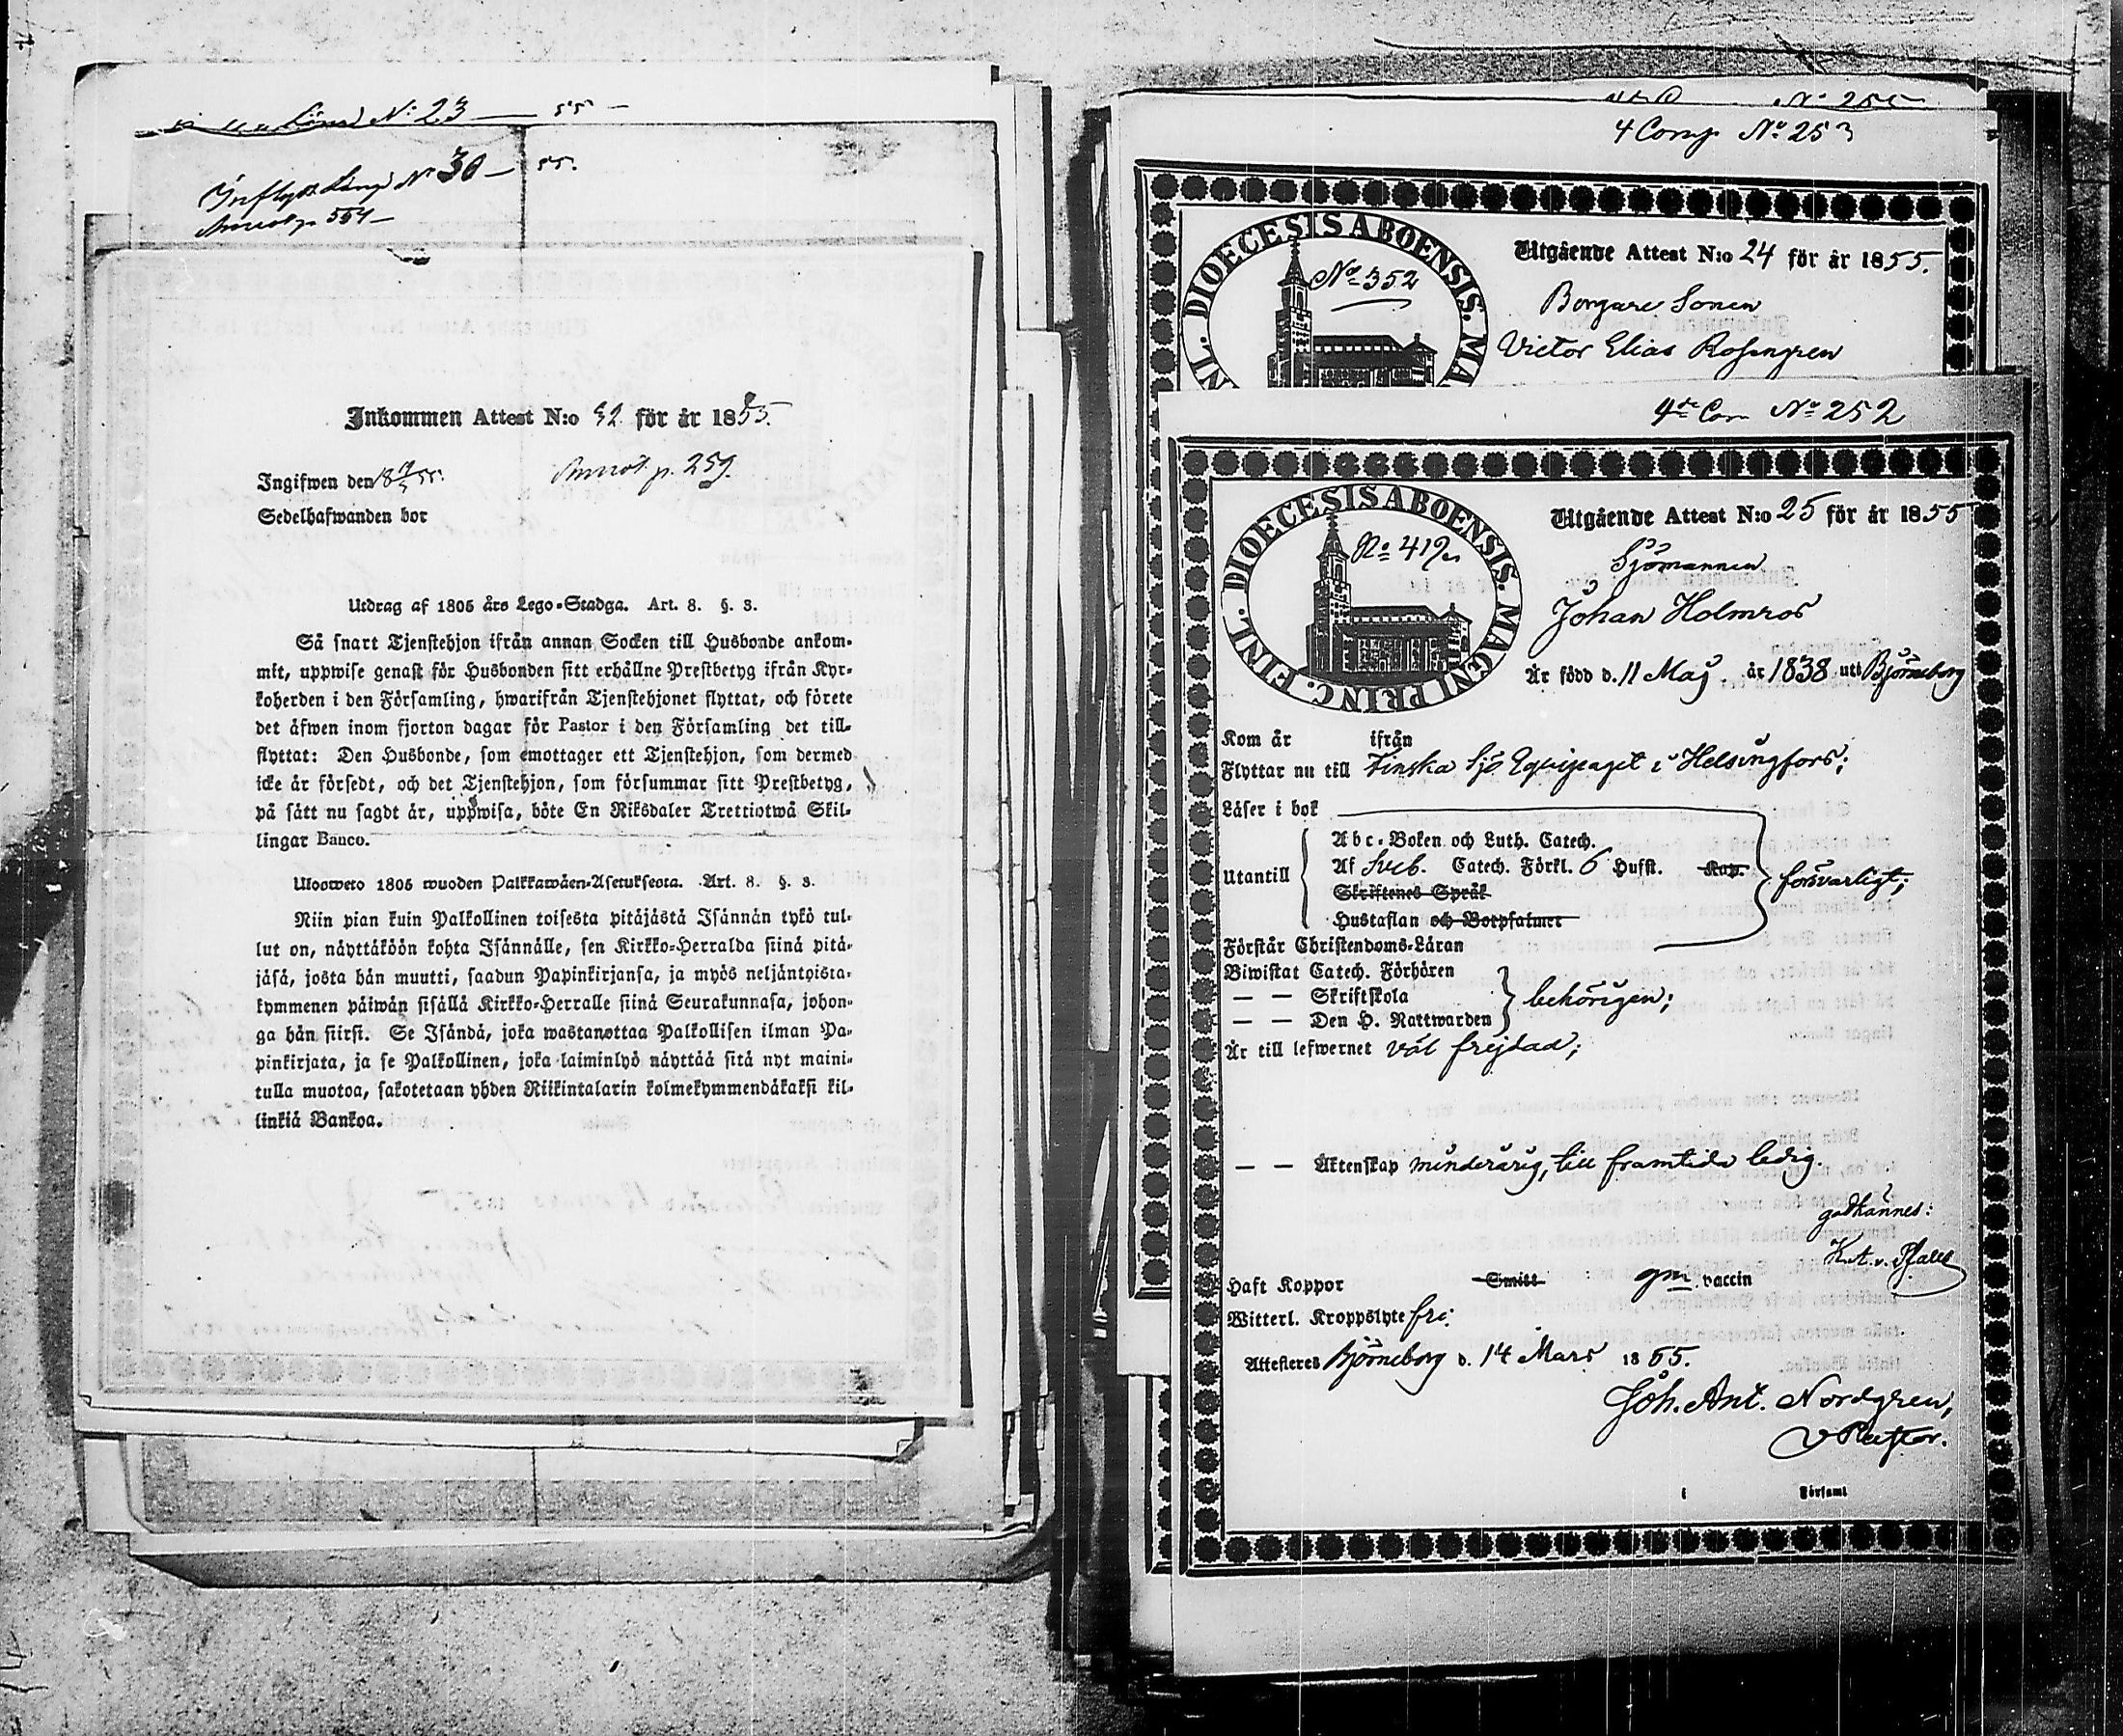 N: 23 — 55 —
Inflytt Längd N: 30 — 55.
Annot p. 554 —
Inkommen Attest N:o 32 för år 1855.
Ingifwen den 18 19/5 55.
Annot. p. 259.
Sedelhafwanden bor
Utdrag af 1805 års Lego-Stadga. Art. 8. §. 3.
Så snart Tjenstehjon ifrån annan Socken till Husbonde ankom-
mit, uppwise genast för Husbonden sitt erhållne Prestbetyg ifrån Kyr-
koherden i den Församling, hwarifrån Tjenstehjonet flyttat, och förete
det äfwen inom fjorton dagar för Pastor i den Församling det till-
flyttat: Den Husbonde, som emottager ett Tjenstehjon, som dermed
icke är försedt, och det Tjenstehjon, som försummar sitt Prestbetyg,
på sätt nu sagdt är, uppwisa, böte En Riksdaler Trettiotwå Skil-
lingar Banco.
Uloswето 1805 wuoden Palkkawäen-Asetuksesta. Art. 8. §. 3.
Niin pian kuin Palkollinen toisesta pitäjästä Isännän tykö tul-
lut on, näyttäköön kohta Isännälle, sen Kirkko-Herralda siinä pitä-
jäsä, josta hän muutti, saadun Papinkirjansa, ja myös neljäntoista-
kymmenen päiwän sisällä Kirkko-Herralle siinä Seurakunnasa, johon-
ga hän siirsi. Se Isändä, joka wastanottaa Palkollisen ilman Pa-
pinkirjata, ja se Palkollinen, joka laiminlyö näyttää sitä nyt maini-
tulla muotoa, sakotetaan yhden Riikintalarin kolmekymmendäkaksi kil-
linkiä Bankoa.
N:o 255
4 Comp N:o 253
DIOECESIS ABOENSIS. MA
No 352
Utgående Attest N:o 24 för år 1855.
Borgare Sonen
Victor Elias Rosengren
4de Com N:o 252
DIOECESIS ABOENSIS. MAGNI PRINC. FINL.
No 419
Utgående Attest N:o 25 för år 1855
Sjömannen
Johan Holmros
Är född d. 11 Maj. år 1838 uti Björneborg
Kom år ifrån
Flyttar nu till Finska Sjö Equipaget i Helsingfors;
Läser i bok
Utantill
Abc-Boken och Luth. Catech.
Af Sveb. Catech. Förkl. 6 Hufst. Kap.
Skriftenes Språk
Hustaflan och Botpsalmer
försvarligt;
Förstår Christendoms-Läran
Biwistat Catech. Förhören
— — Skriftskola
— — Den H. Nattwarden
behörigen;
Är till lefwernet väl frejdad;
— — Äktenskap minderårig, till framtida ledig.
godkännes:
Haft Koppor Smitt gm vaccin
Witterl. Kroppslyte fri;
Attesteres Björneborg d. 14 Mars 1855.
Joh. Ant. Nordgren,
v Pastor.
i Församl